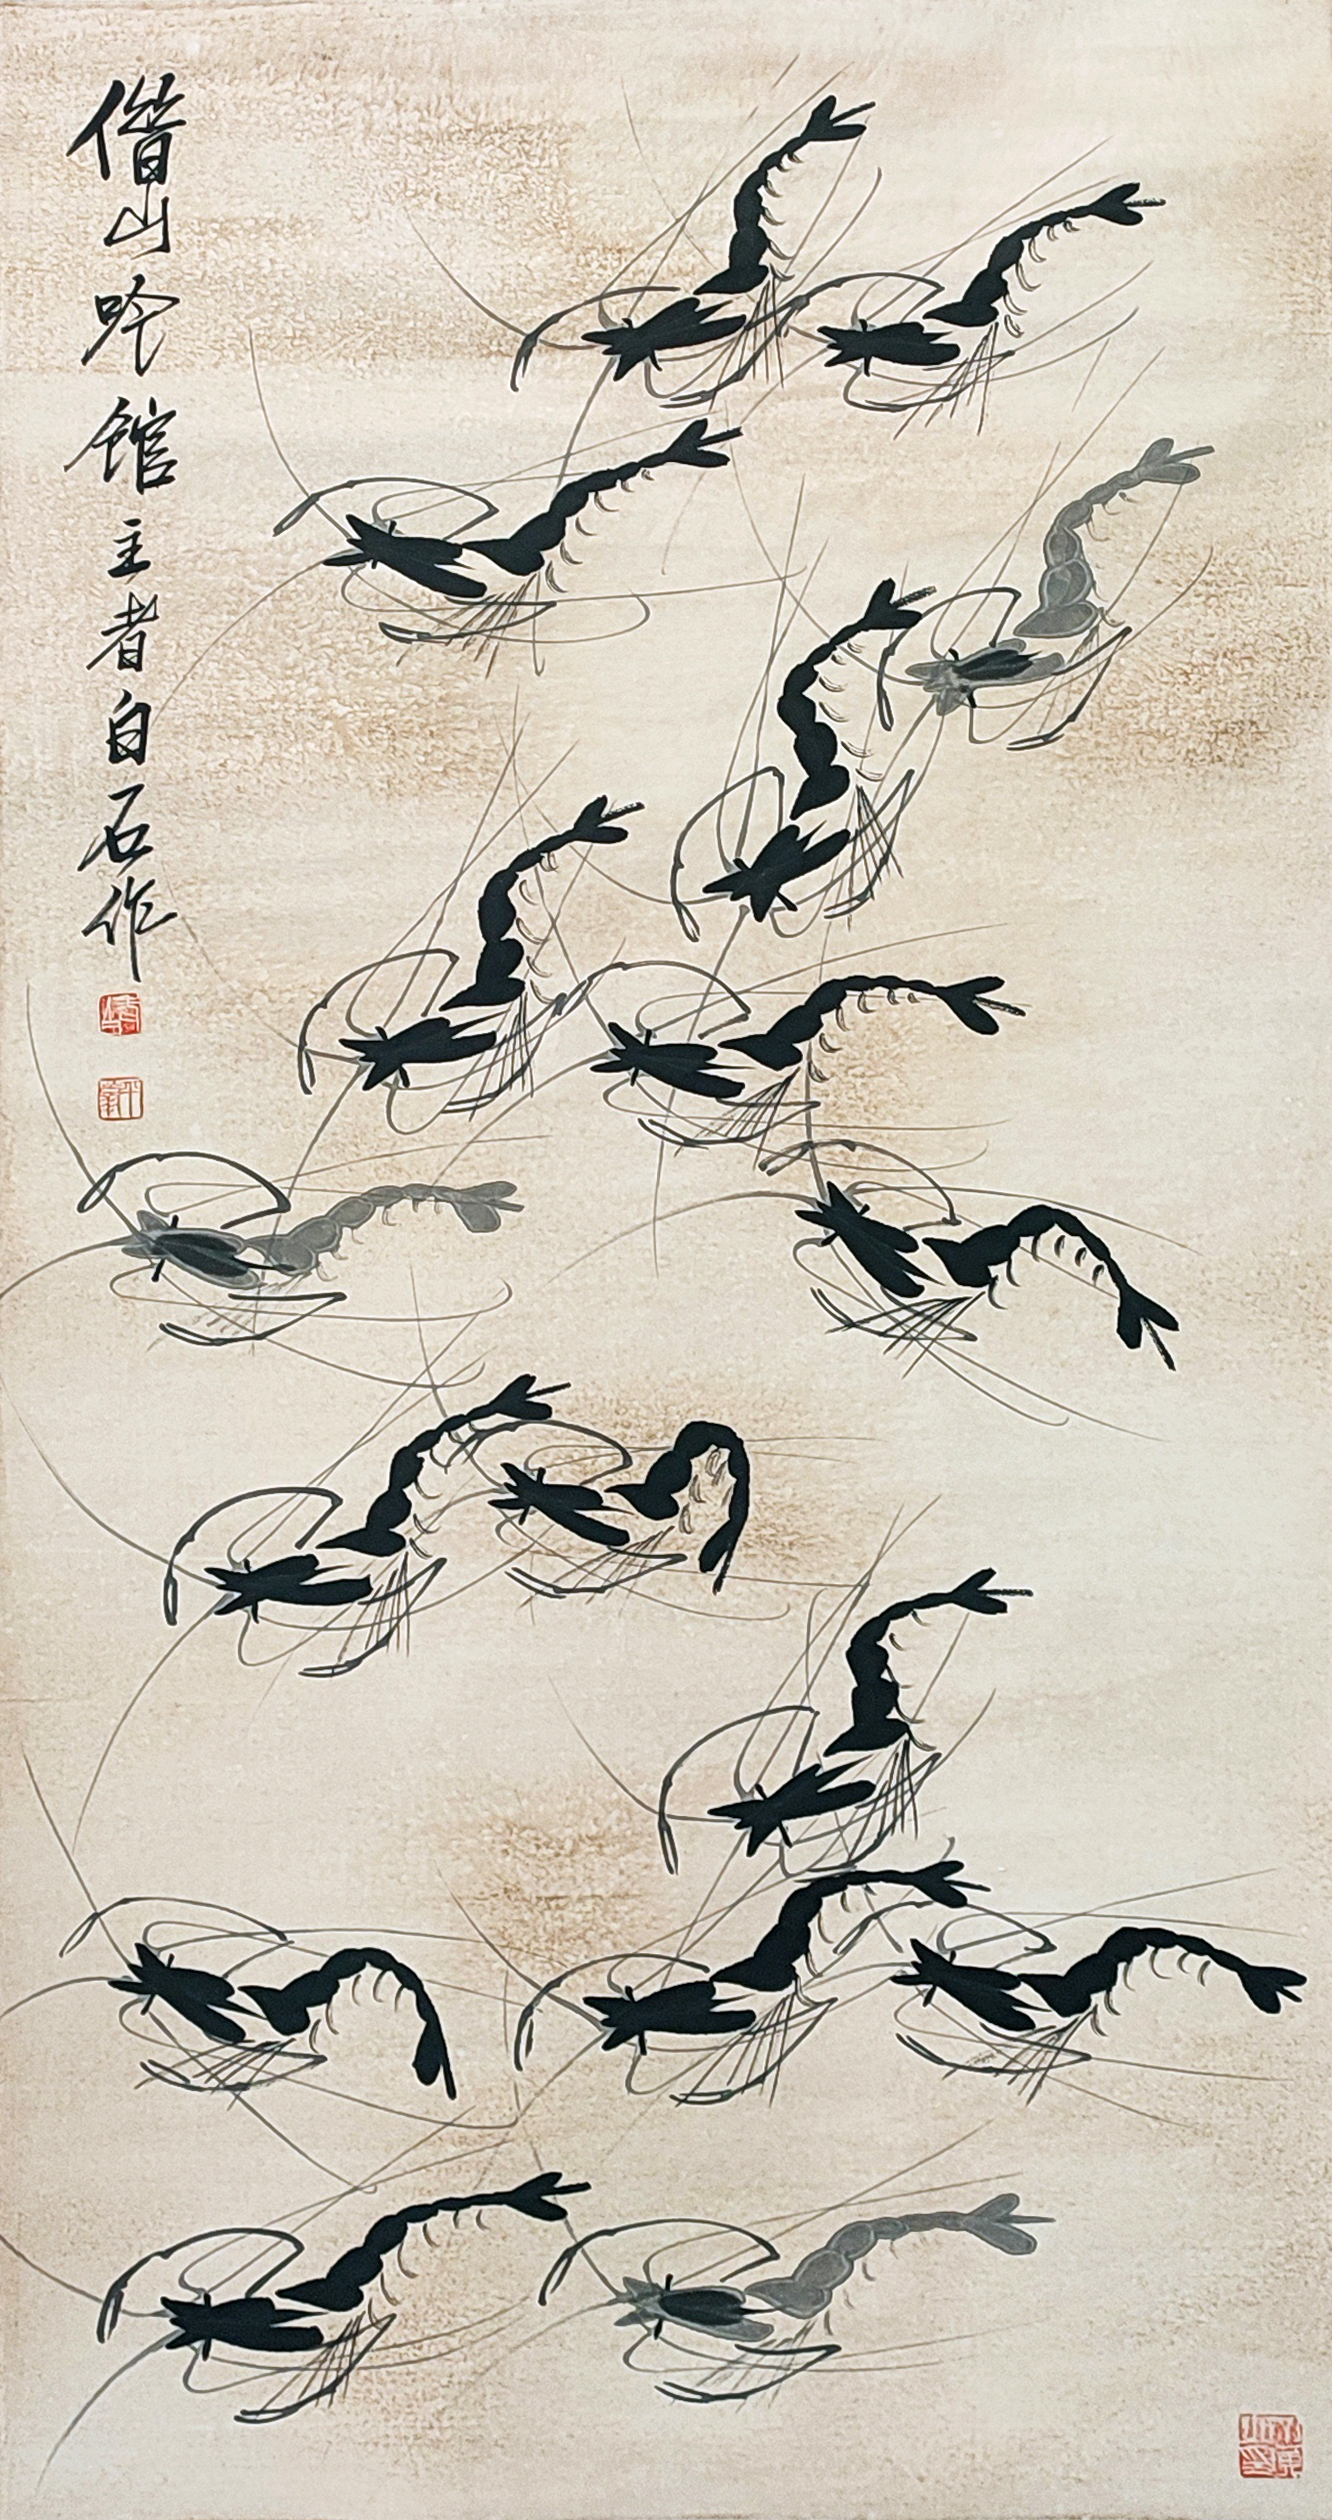 借山吟馆主者白石作